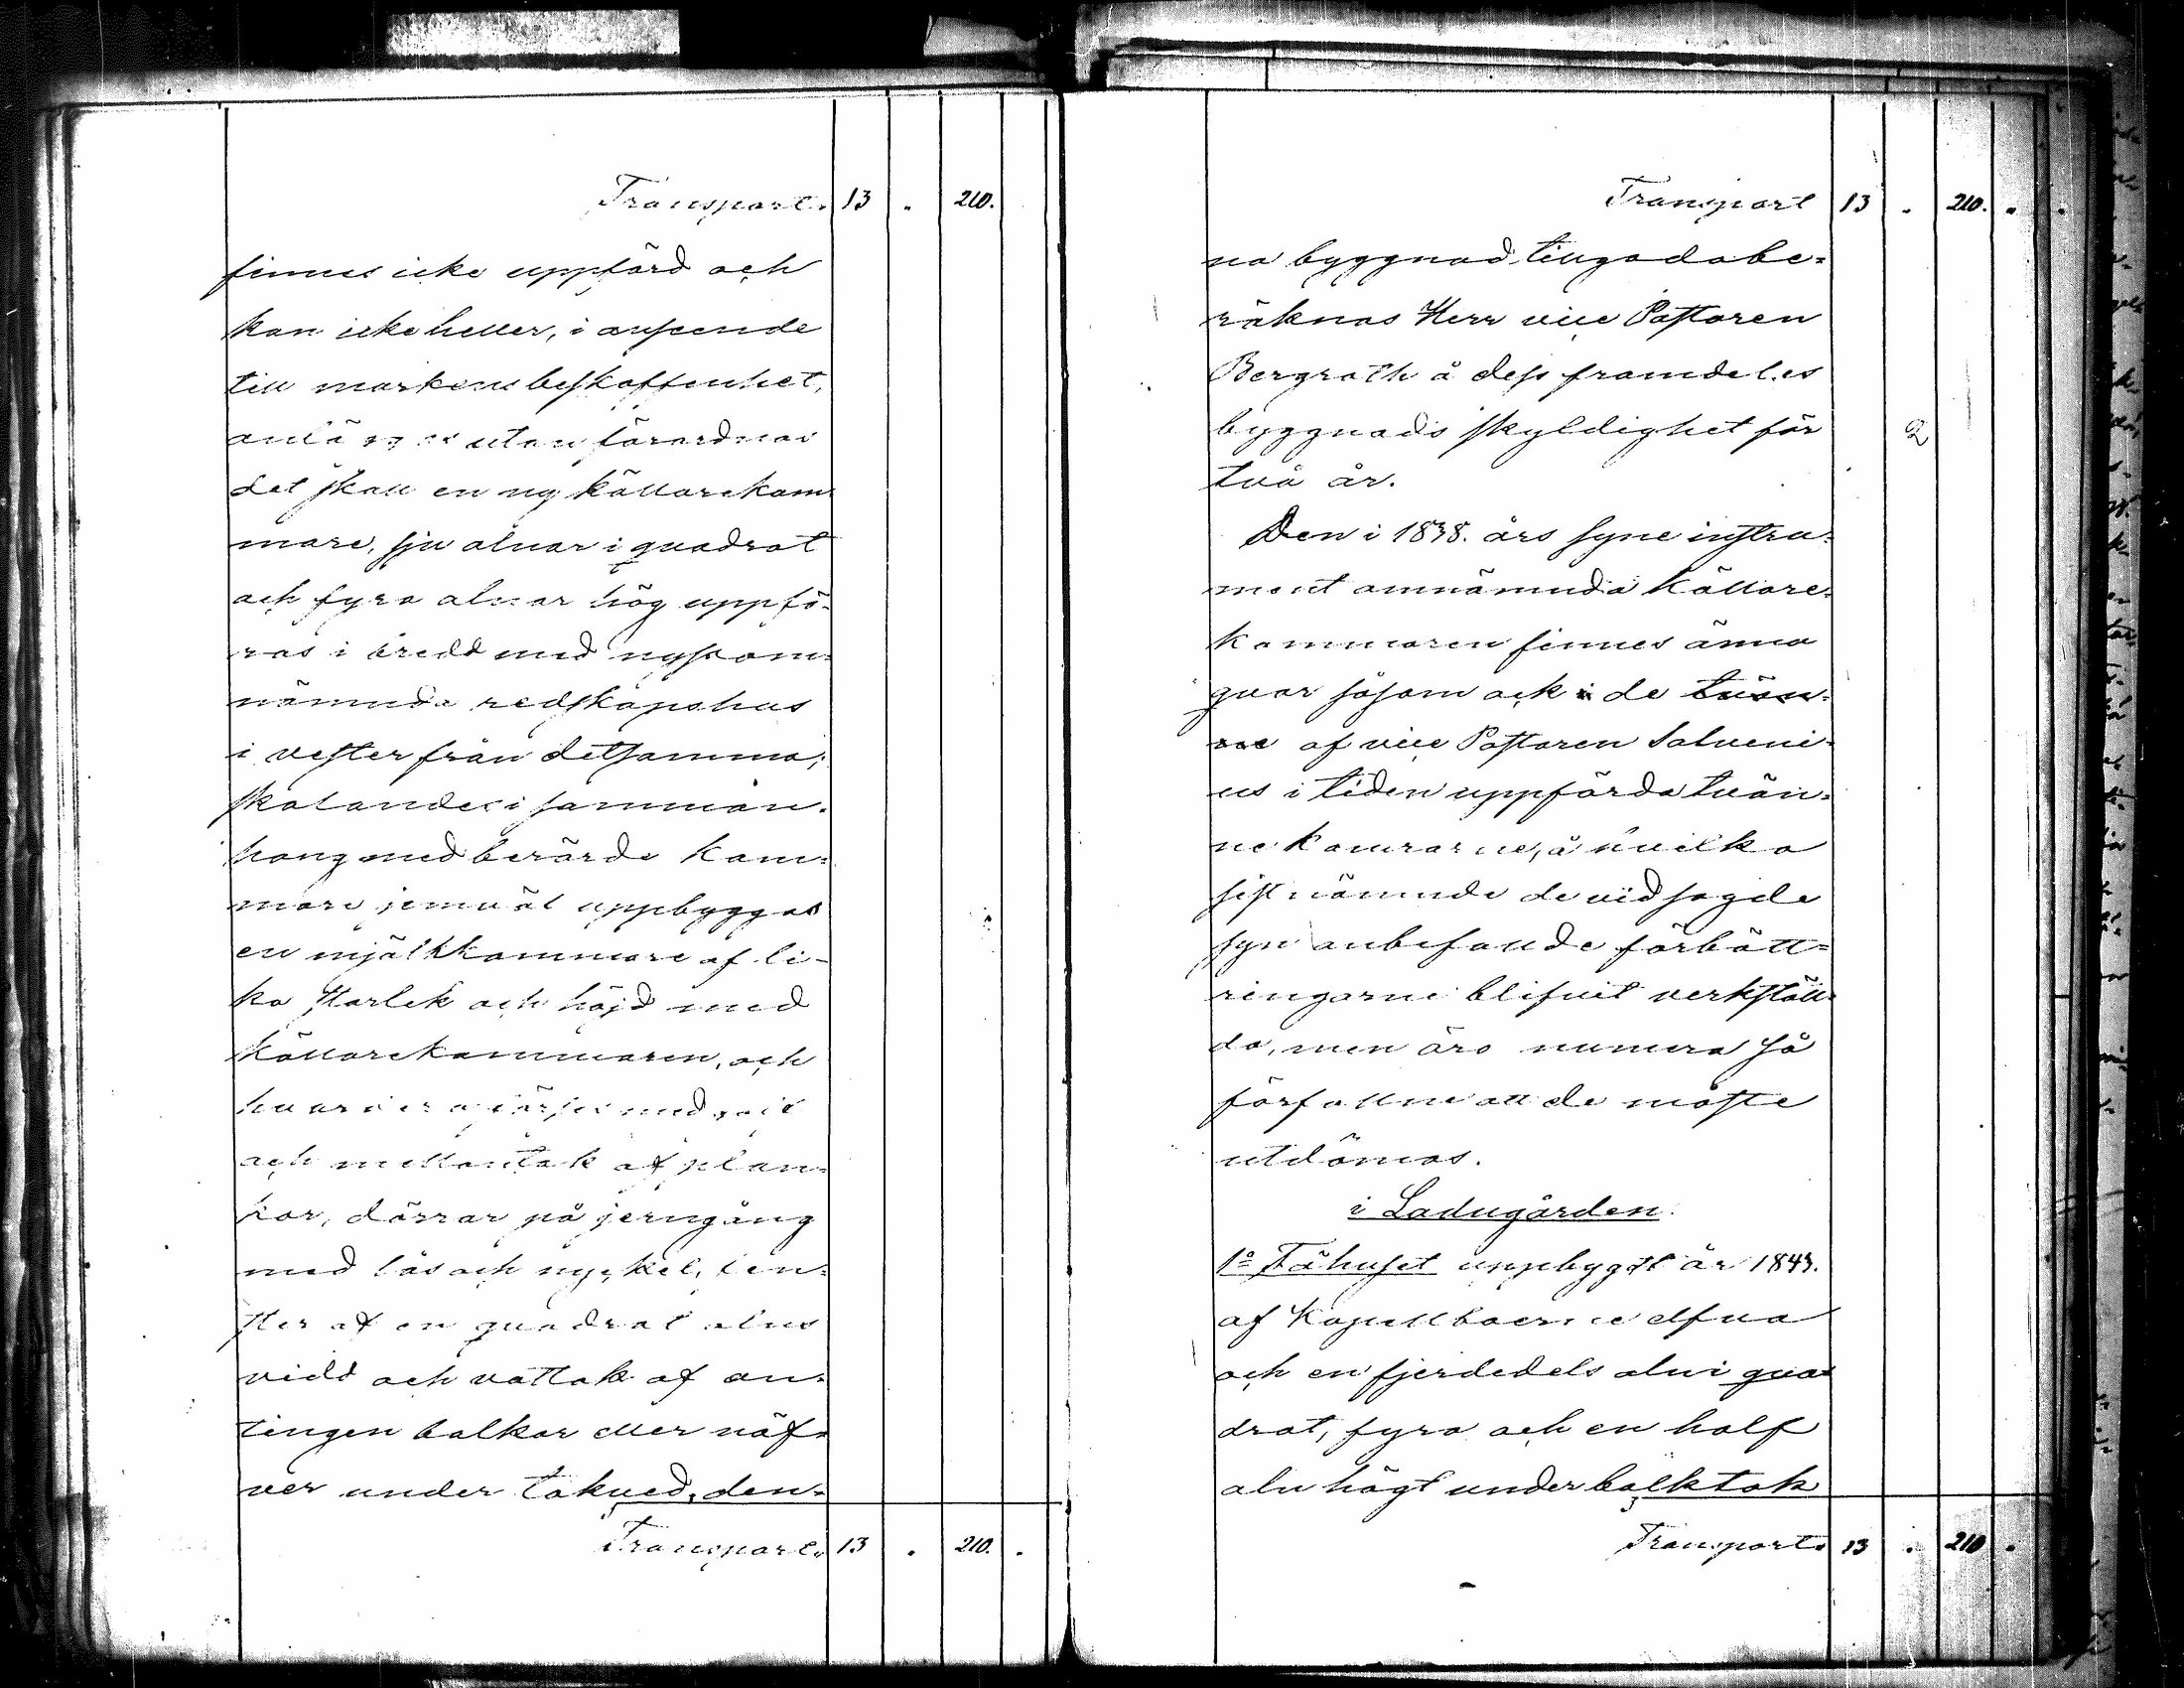 Transport. 13 " 210.
finnes icke uppförd och
kan icke heller, i anseende
till markens beskaffenhet,
anläggas utan förordnas
det skall en ny källarekam-
mare, sju alnar i quadrat
och fyra alnar hög uppfö-
ras i bredd med nyssom-
nämnda redskapshus
i vester från detsamma,
skolandes i samman-
hang med berörde kam-
mare jemväl uppbyggas
en mjölkkammare af li-
ka storlek och höjd med
källarekammaren, och
med golf
och mellantak af plan-
kor, dörrar på jerngång
med lås och nyckel, fen-
ster af en quadrat alns
vidd och vattak af an-
tingen balkar eller näf-
ver under takved, den-
Transport. 13 " 210. "
Transport 13 " 210. "
na byggnad tillgodobe-
räknas Herr vice Pastoren
Bergroth å dess framdeles
byggnads skyldighet för 2
två år.
Den i 1838. års syne instru-
ment omnämnda källare-
kammaren finnes ännu
qvar såsom ock de tvän-
ne af vice Pastoren Salveni-
us i tiden uppförda tvän-
ne kamrarne, å hvilka
sistnämnde de vid sagde
syn anbefallde förbätt-
ringarne blifvit verkställ-
da, men äro numera så
förfallne att de måste
utdömas.
i Ladugården.
1º Fähuset uppbygdt år 1843.
af Kapellboerne elfva
och en fjerdedels aln i qua-
drat, fyra och en half
aln högt under balktak
Transport. 13 " 210 "